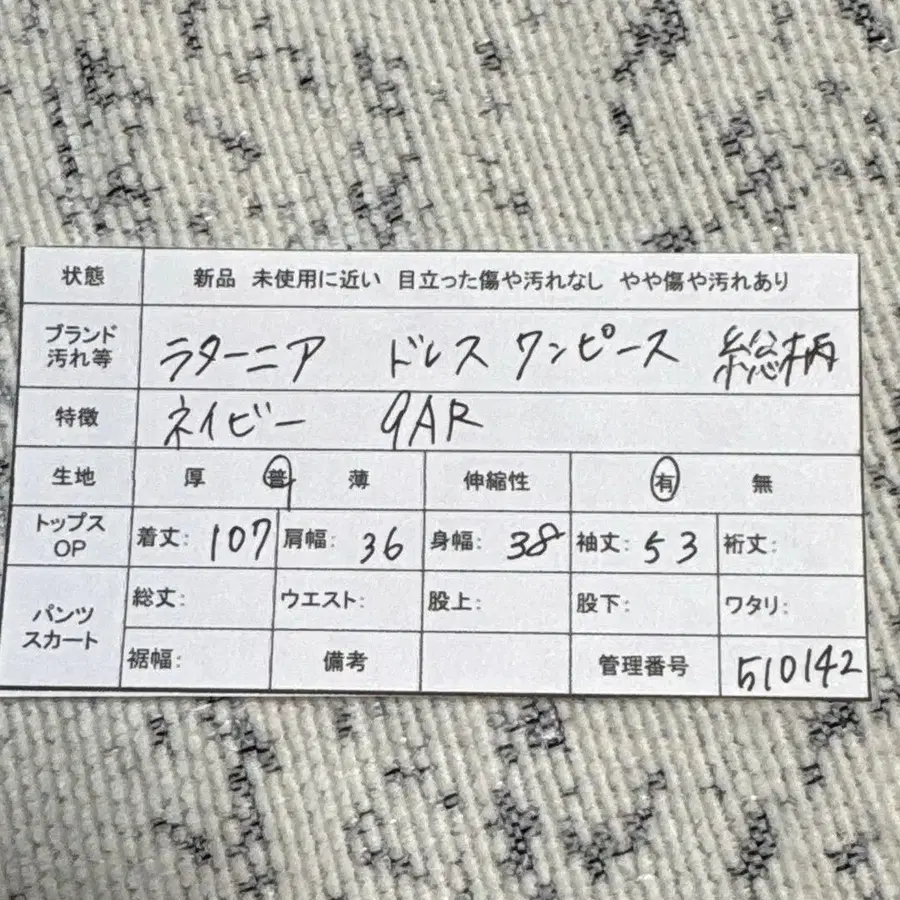 状態 新品 未使用に近い 目立った傷や汚れなし やや傷や汚れあり
ブランド
汚れ等 ラターニア ドレス ワンピース 総柄
特徴 ネイビー 9AR
生地 厚 普 薄 伸縮性 有 無
トップス
OP 着丈: 107 肩幅: 36 身幅: 38 袖丈: 53 裄丈:
パンツ
スカート 総丈: ウエスト: 股上: 股下: ワタリ:
裾幅: 備考 管理番号 510142